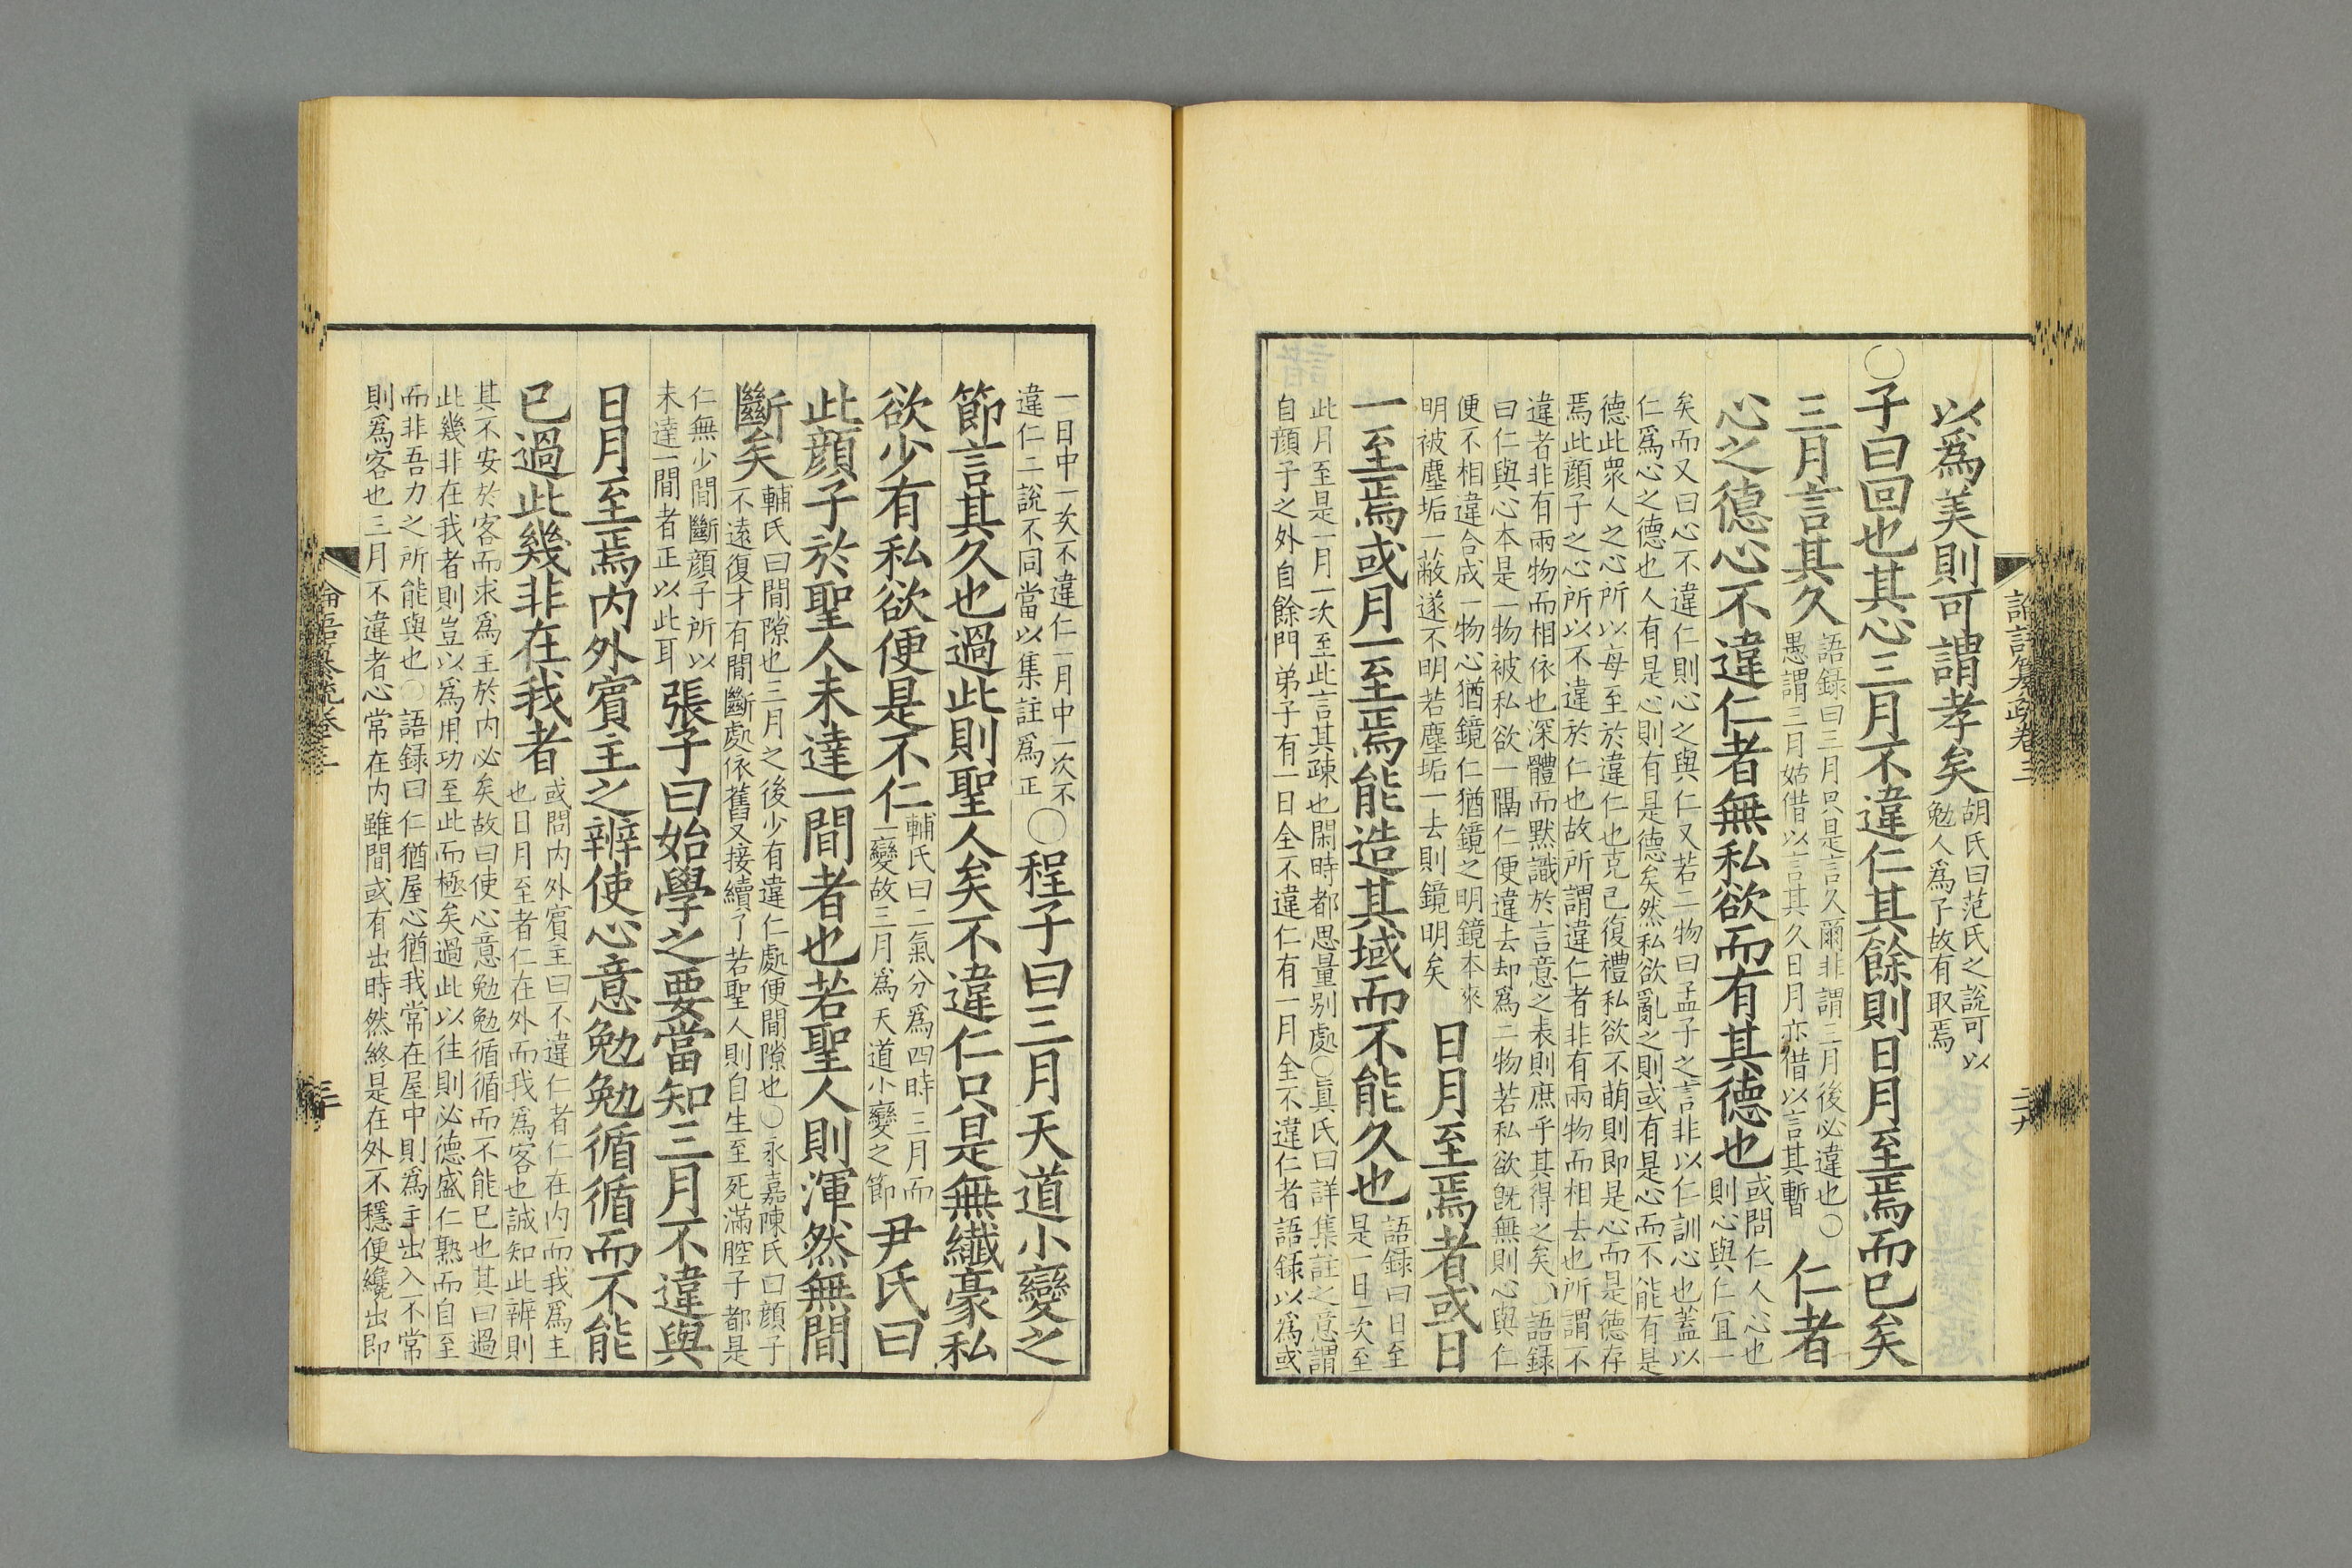 以爲美則可謂孝矣
胡氏曰范氏之說可以
勉人爲子故有取焉
○子曰回也其心三月不違仁其餘則日月至焉而已矣
三月言其久
語錄曰三月只是言久爾非謂三月後必違也○
愚謂三月姑借以言其久日月亦借以言其暫
仁者
心之德心不違仁者無私欲而有其德也
或問仁人心也
則心與仁宜一
矣而又曰心不違仁則心之與仁又若二物曰孟子之言非以仁訓心也蓋以
仁爲心之德也人有是心則有是德矣然私欲亂之則或有是心而不能有是
德此衆人之心所以每至於違仁也克己復禮私欲不萌則即是心而是德存
焉此顔子之心所以不違於仁也故所謂違仁者非有兩物而相去也所謂不
違者非有兩物而相依也深體而默識於言意之表則庶乎其得之矣○語錄
曰仁與心本是一物被私欲一隔仁便違去却爲二物若私欲旣無則心與仁
便不相違合成一物心猶鏡仁猶鏡之明鏡本來
明被塵垢一蔽遂不明若塵垢一去則鏡明矣
日月至焉者或日
一至焉或月一至焉能造其域而不能久也
語錄曰日至
是一日一次至
此月至是一月一次至此言其疎也閑時都思量别處○眞氏曰詳集註之意謂
自顔子之外自餘門弟子有一日全不違仁有一月全不違仁者語錄以爲或
論語纂疏卷三
二十九
一日中一次不違仁一月中一次不
違仁二說不同當以集註爲正
○程子曰三月天道小變之
節言其久也過此則聖人矣不違仁只是無纖豪私
欲少有私欲便是不仁
輔氏曰二氣分爲四時三月而
一變故三月爲天道小變之節
尹氏曰
此顔子於聖人未達一間者也若聖人則渾然無間
斷矣
輔氏曰間隙也三月之後少有違仁處便間隙也○永嘉陳氏曰顔子
不遠復才有間斷處依舊又接續了若聖人則自生至死滿腔子都是
仁無少間斷顔子所以
未達一間者正以此耳
張子曰始學之要當知三月不違與
日月至焉內外賓主之辨使心意勉勉循循而不能
已過此幾非在我者
或問內外賓主曰不違仁者仁在內而我爲主
也日月至者仁在外而我爲客也誠知此辨則
其不安於客而求爲主於內必矣故曰使心意勉勉循循而不能已也其曰過
此幾非在我者則豈以爲用功至此而極矣過此以往則必德盛仁熟而自至
而非吾力之所能與也○語錄曰仁猶屋心猶我常在屋中則爲主出入不常
則爲客也三月不違者心常在內雖間或有出時然終是在外不穩便纔出即
論語纂疏卷三
三十